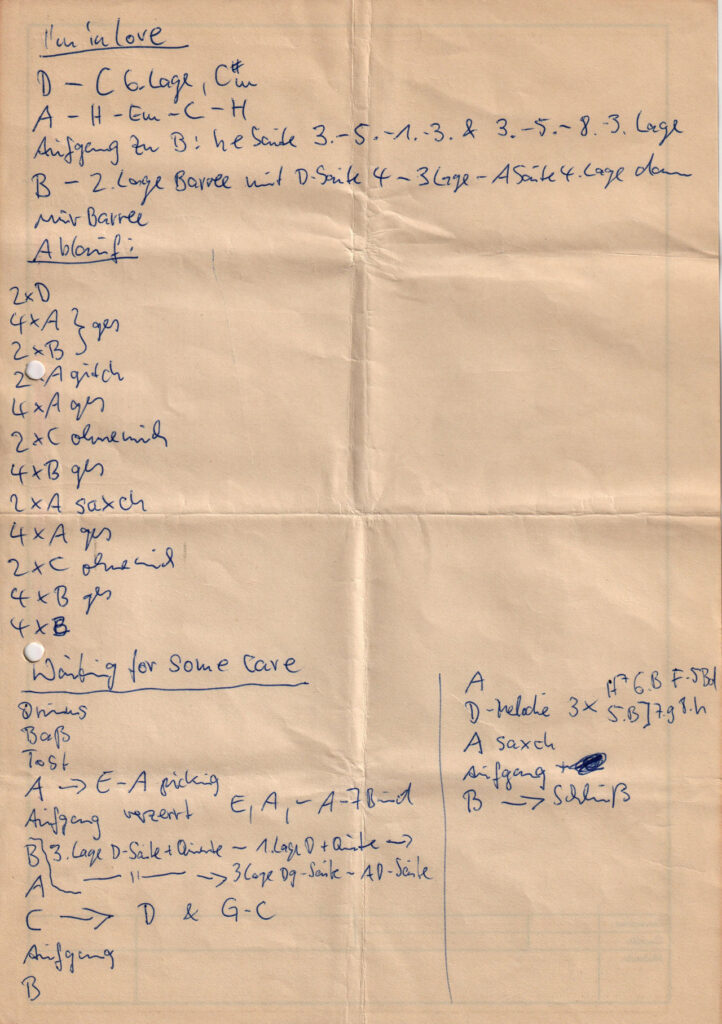 I'm in love
D – C 6. Lage, C#m
A – H – Em – C – H
Aufgang zu B: he Saite 3.-5.-1.-3. & 3.-5.-8.-3. Lage
B – 2. Lage Barree mit D-Saite 4 – 3 Lage – A Saite 4. Lage dann
nur Barree
Ablauf:
2xD
4xA } ges
2xB
2xA gitch
4xA ges
2xC ohne mich
4xB ges
2xA saxch
4xA ges
2xC ohne mich
4xB ges
4xB
Waiting for some care
Drums
Baß
Tast
A → E-A picking
Aufgang verzerrt E, A, – A-7 Bund
B 3. Lage D-Saite + Quinte – 1. Lage D + Quinte →
A — " — → 3 Lage Dg-Saite – AD-Saite
C → D & G-C
Aufgang
B
A
D-Melodie 3x 6.B F-5Bd
5.B] 7.g 8.h
A saxch
Aufgang
B → Schluß